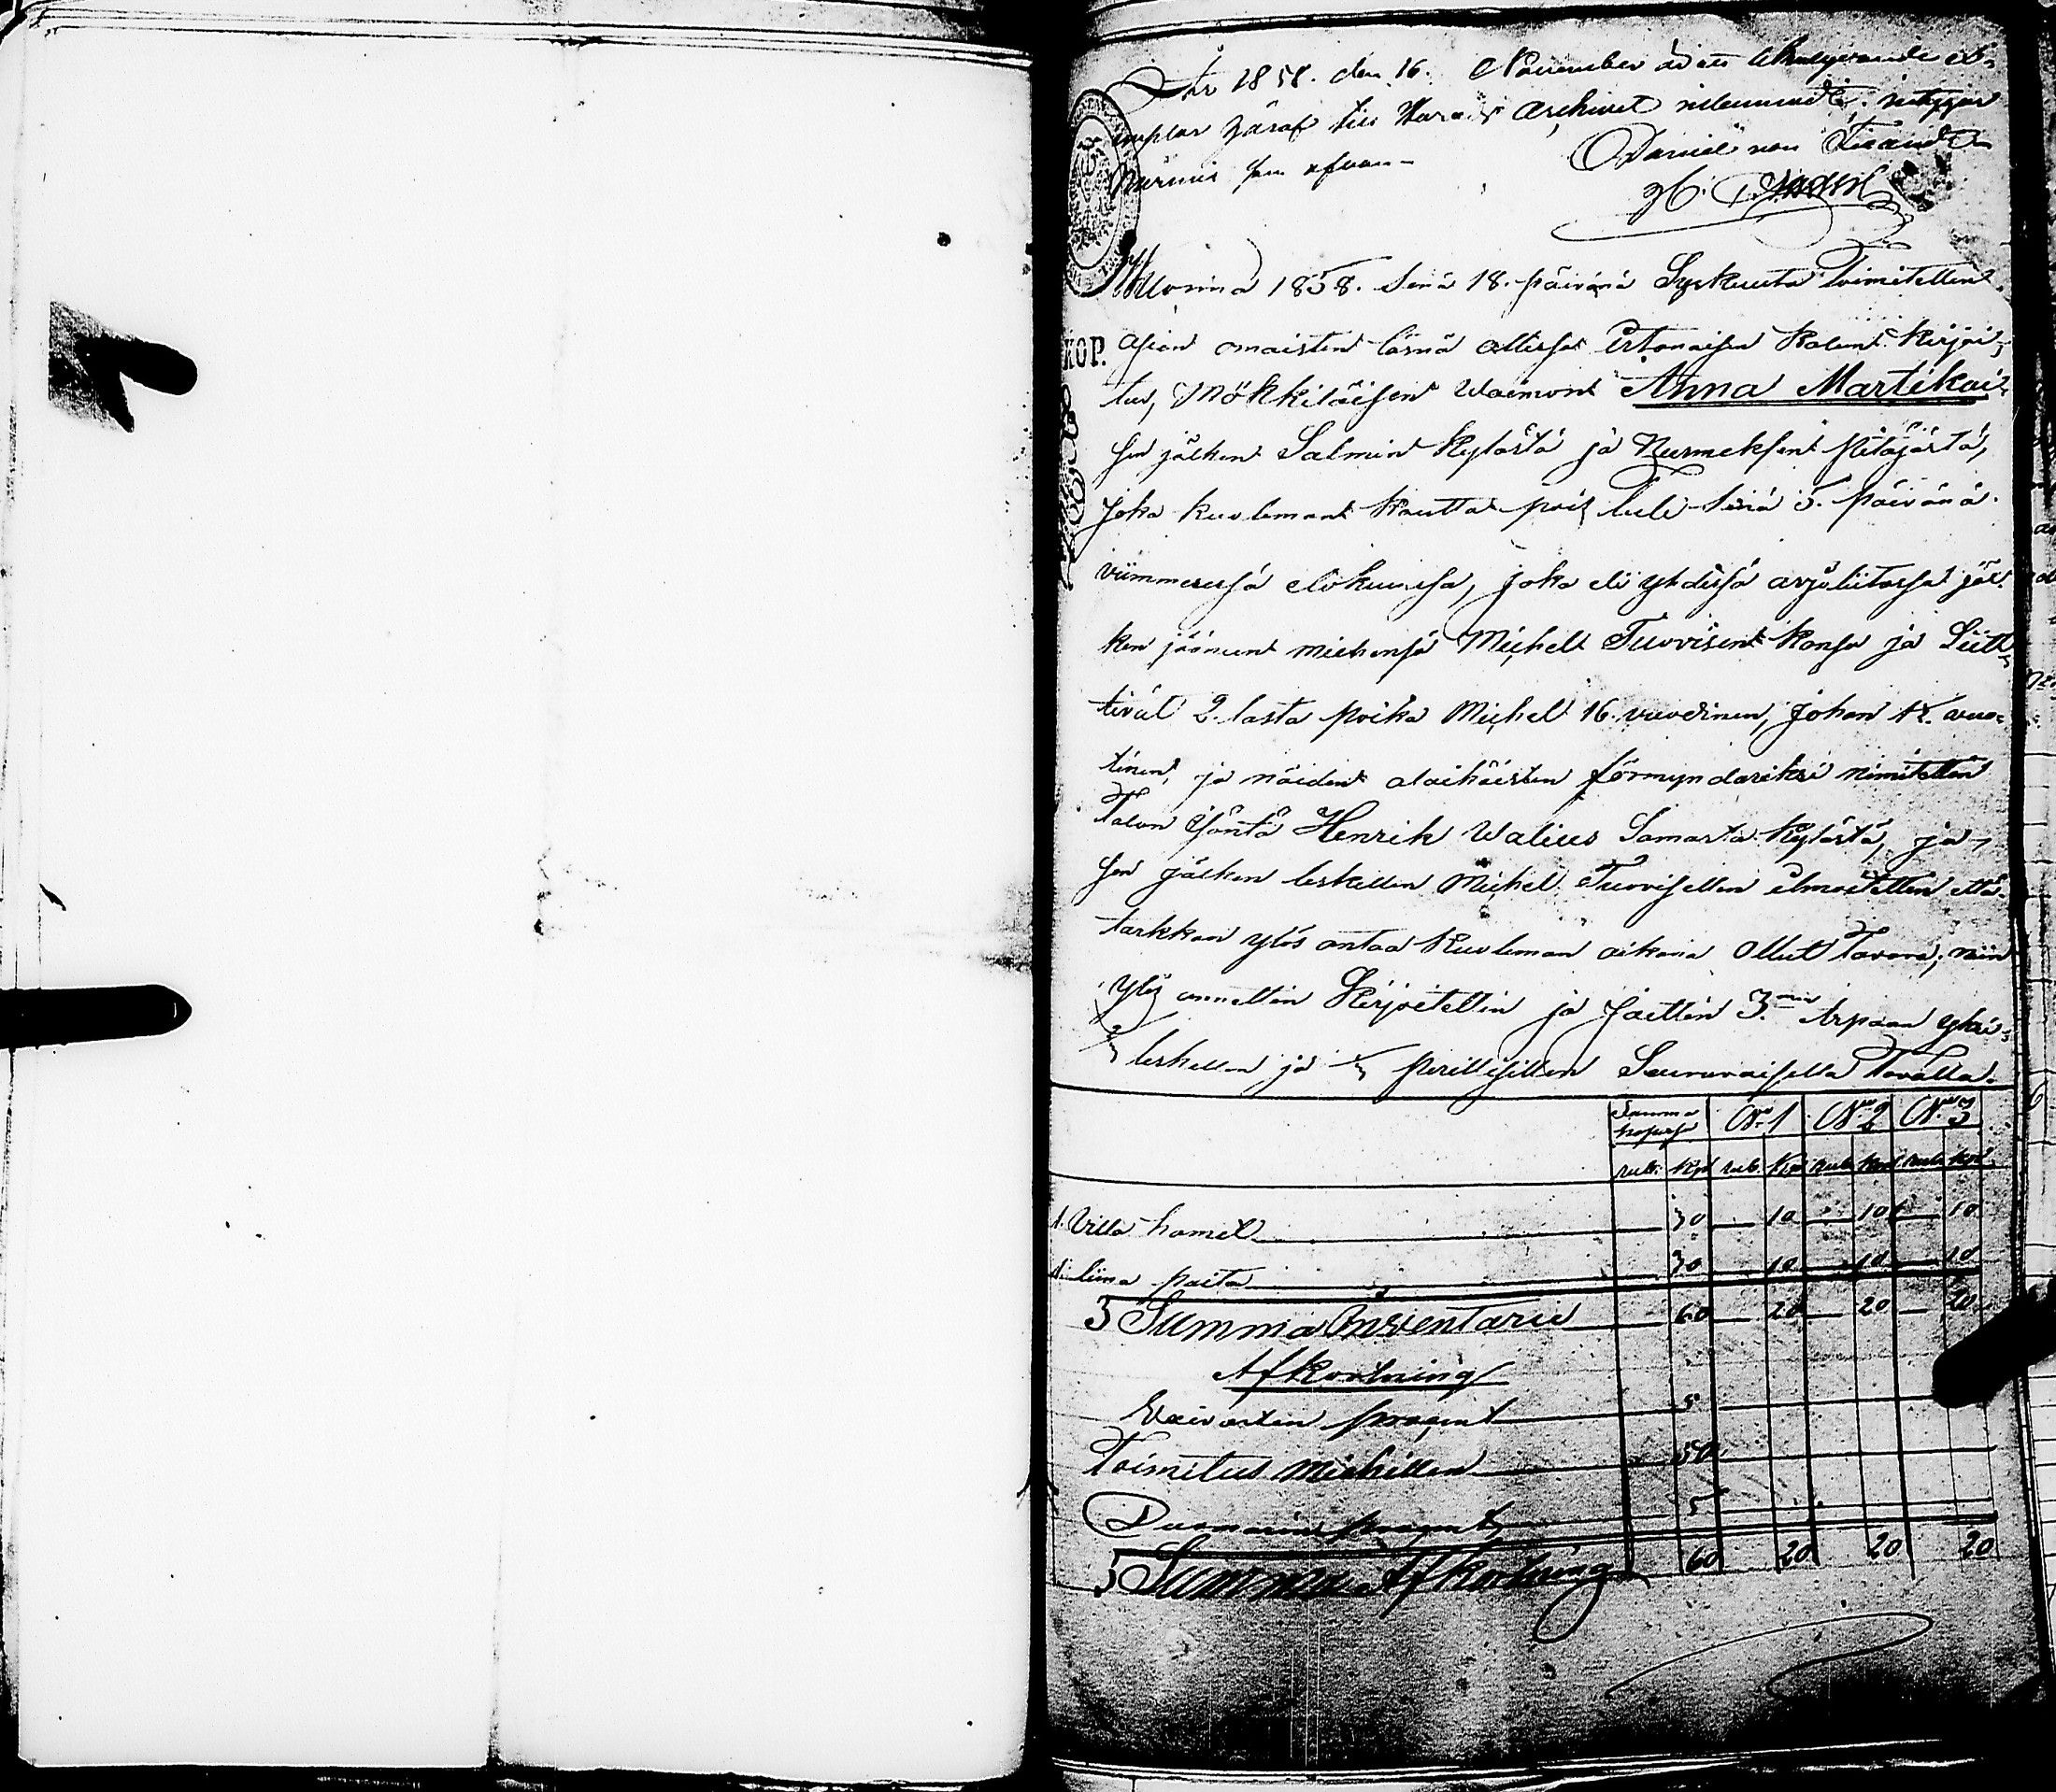 År 1858. den 16. November är ett likalydande ex-
emplar häraf till Härads Archivet inlemnadt, intygar
Nurmis som ofvan-
Daniel von
Wuonna 1858. Senä 18. päivänä Syskuuta Toimitettin
KOP. Asian omaisten läsnä ollessa Irtonaisen kalun kirjoi-
tus, Mökkiläisen Waimon Anna Martikai-
sen jälken Salmin kylästä ja Nurmeksen pitäjästä,
Joka kuoleman kautta pois tuli Senä 5. päivänä
viimmesessä elokuussa, joka eli yhdessä avjoliitossa jäl-
ken jäänen miehensä Michel Tuovisen kansa ja Siitt-
tivät 2. lasta poika Michel 16. vuodinen, Johan 12. vuo-
tinen, ja näiden alaikäisten förmyndariksi nimitettin
Talon isäntä Henrik Walius Samasta kylästä, ja
sen jälken leskellen Michel Tuovisellen ilmoitettin että
tarkkan ylös antaa kuoleman aikana Ollut Tavara, niin
ylös annettin Kirjoitettin ja Jaettin 3.min Arpaan yksi
leskellen ja perillisillen Seuravaisella Tavalla.
Summa N:o 1 N:o 2 N:o 3
rub. kop. rub. kop. rub. kop. rub. kop.
1. Villa hamet 30 10 10 10
1. liina paita 30 10 10 10
Summa Inventarii 60 20 20 20
Afkortning
Vaivasten prosent 5
Toimitus Miehillen 50
prosent 5
Summa Afkortning 60 20 20 20